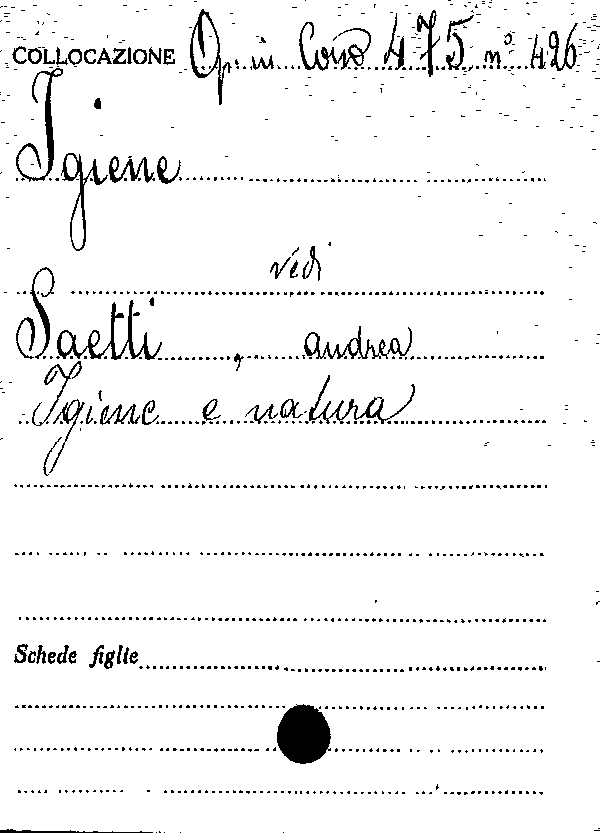 COLLOCAZIONE Op. in Cons 475 n° 426
Igiene
vedi
Saetti, andrea
Igiene e natura
Schede figlie